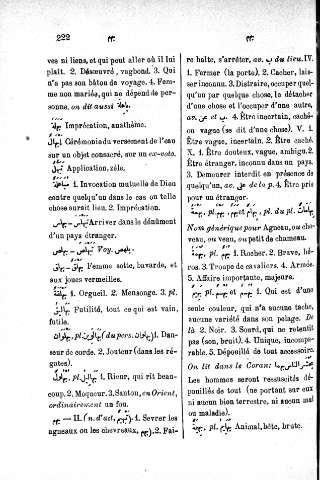 222
بهم
بهم
ves ni liens, et qui peut aller où il lui
plaît. 2. Désœuvré, vagbond. 3. Qui
n'a pas son bâton de voyage. 4. Femme
non mariée, qui ne dépend de personne,
on dit aussi باهلة
بهلة Imprécation, anathème.
إبهال Cérémonie du versement de l'eau
sur un objet consacré, sur un ex-voto.
تبهيل Application, zèle.
مباهلة 1. Invocation mutuelle de Dieu
contre quelqu'un dans le cas on telle
chose aurait lieu. 2. Imprécation.
Arriver dans le dénûment
d'un pays étranger.
Voy.
Femme sotte, bavarde, et
aux joues vermeilles.
1. Orgueil. 2. Mensonge. 3. pl.
Futilité, tout ce qui est vain,
futile.
بهلوان, pl. (du pers.) 1. Danseur
de corde. 2. Jouteur (dans les régates).
بهلول, pl. بهاليل 1. Rieur, qui rit beaucoup.
2. Moqueur. 3. Santon, en Orient,
ordinairement un fou.
بهم — II. (n. d'act.) 1. Sevrer les
agneaux ou les chevreaux, بهم. 2. Faire
halte, s'arrêter, av. ب du lieu. IV.
1. Fermer (la porte). 2. Cacher, laisser
inconnu. 3. Distraire, occuper quelqu'un
par quelque chose, le détacher
d'une chose et l'occuper d'une autre,
av. عن de. 4. Être incertain, caché
ou vague (se dit d'une chose). V. 1.
Être vague, incertain. 2. Être caché.
X. 1. Être douteux, vague, ambigu. 2.
Être étranger, inconnu dans un pays.
3. Demeurer interdit en présence de
quelqu'un, av. على de la p. 4. Être pris
pour un étranger.
بهمة, pl. بهم, بهام, du pl.
Nom générique pour Agneau, ou chevreau,
ou veau, ou petit de chameau.
بهمة, pl. بهم 1. Rocher. 2. Brave, héros.
3. Troupe de cavaliers. 4. Armée.
5. Affaire importante, majeure.
بهيم, pl. بهم 1. Qui est d'une
seule couleur, qui n'a aucune tache,
aucune variété dans son pelage. De
là 2. Noir. 3. Sourd, qui ne retentit
pas (son, bruit). 4. Unique, incomparable.
5. Dépouillé de tout accessoire.
On lit dans le Coran:
Les hommes seront ressuscités dépouillés
de tout (ne portant sur eux
ni aucun bien terrestre, ni aucun mal
ou maladie).
بهيمة, pl. بهائم Animal, bête, brute.